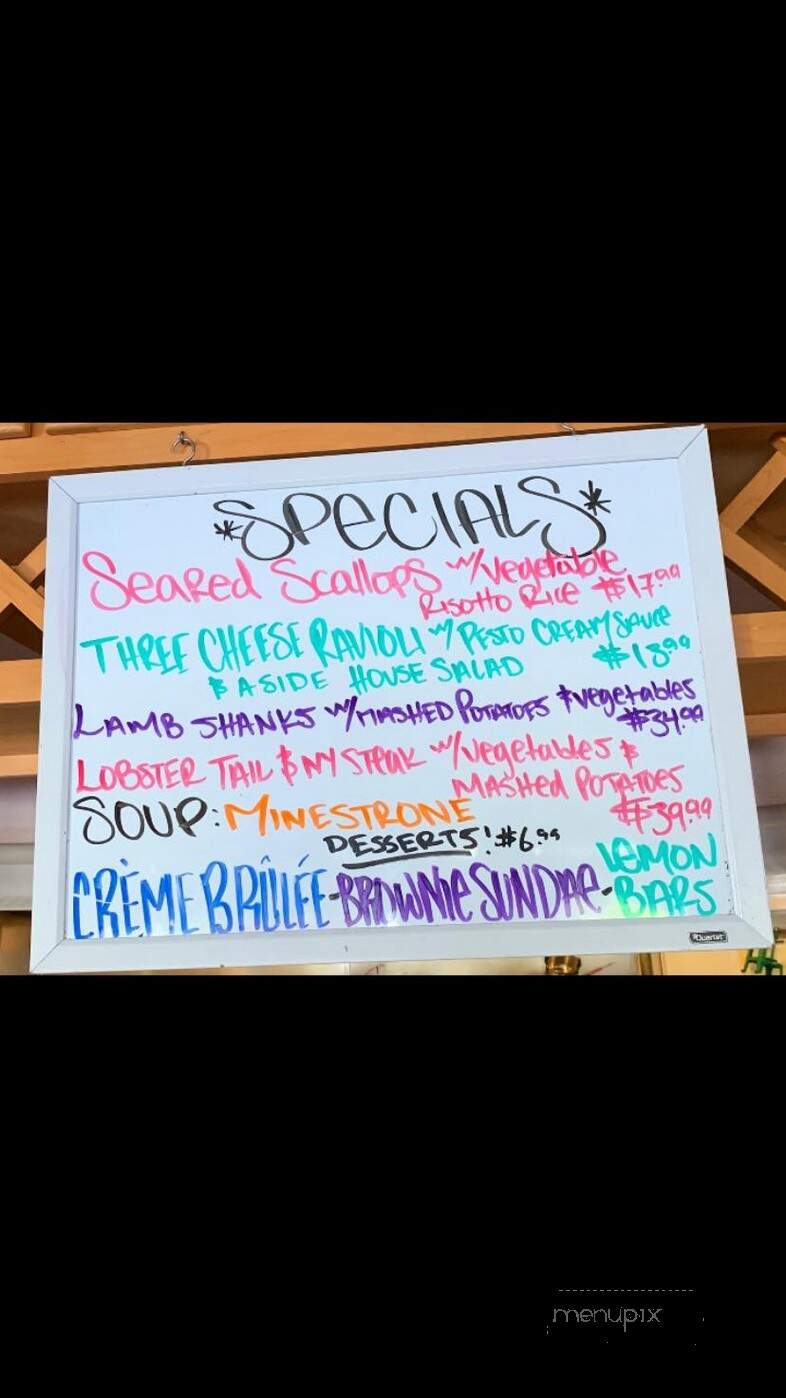 *SPECIALS*
Seared Scallops w/Vegetable
Risotto Rice $17.99
THREE CHEESE RAVIOLI w/ PESTO CREAM SAUCE
& A SIDE HOUSE SALAD $13.99
LAMB SHANKS w/MASHED POTATOES & vegetables
$34.99
LOBSTER TAIL & NY STEAK w/Vegetables &
MASHED POTATOES
$39.99
SOUP: MINESTRONE
DESSERTS! $6.99
CRÈME BRÛLÉE - BROWNIE SUNDAE - LEMON BARS
Quartet
menupix